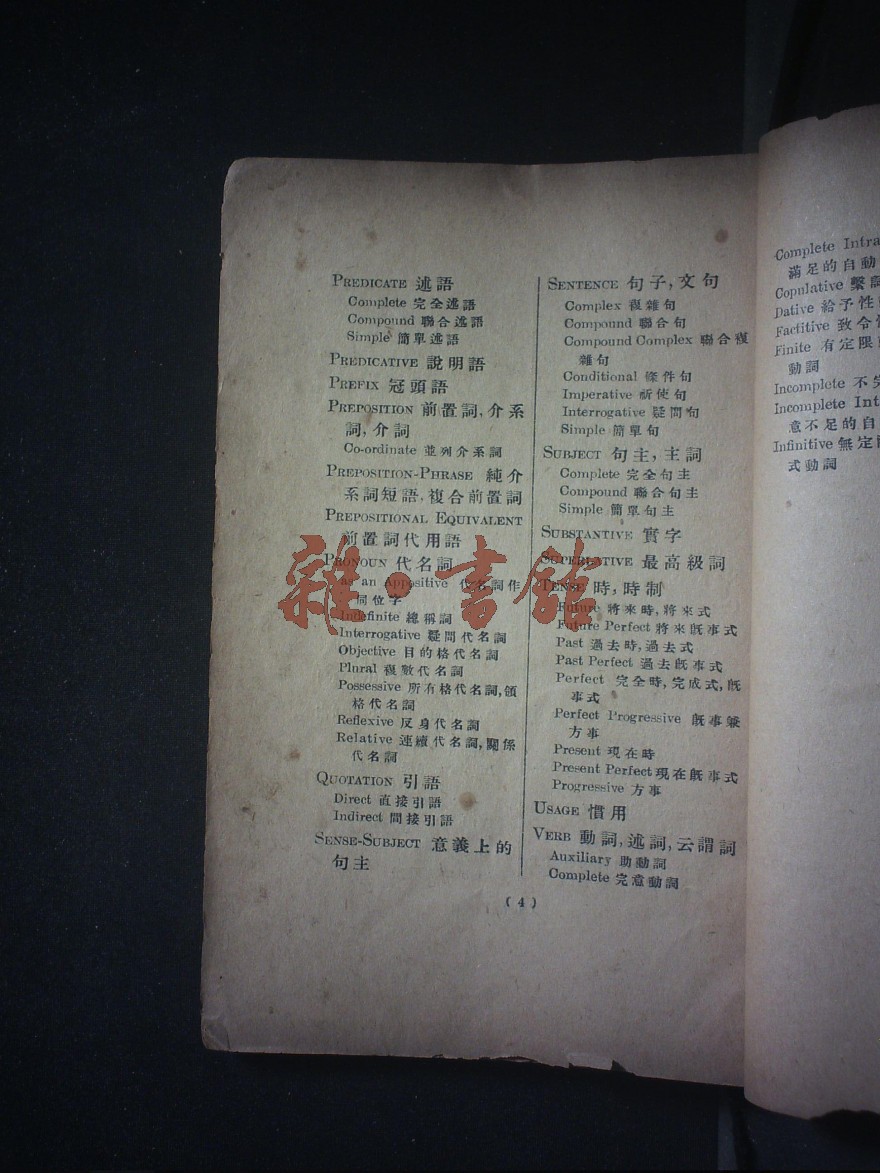 PREDICATE 述語
Complete 完全述語
Compound 聯合述語
Simple 簡單述語
PREDICATIVE 說明語
PREFIX 冠頭語
PREPOSITION 前置詞,介系
詞,介詞
Co-ordinate 並列介系詞
PREPOSITION-PHRASE 純介
系詞短語,複合前置詞
PREPOSITIONAL EQUIVALENT
前置詞代用語
PRONOUN 代名詞
as an Appositive 代名詞作
同位字
Indefinite 總稱詞
Interrogative 疑問代名詞
Objective 目的格代名詞
Plural 複數代名詞
Possessive 所有格代名詞,領
格代名詞
Reflexive 反身代名詞
Relative 連續代名詞,關係
代名詞
QUOTATION 引語
Direct 直接引語
Indirect 間接引語
SENSE-SUBJECT 意義上的
句主
SENTENCE 句子,文句
Complex 複雜句
Compound 聯合句
Compound Complex 聯合複
雜句
Conditional 條件句
Imperative 祈使句
Interrogative 疑問句
Simple 簡單句
SUBJECT 句主,主詞
Complete 完全句主
Compound 聯合句主
Simple 簡單句主
SUBSTANTIVE 實字
SUPERLATIVE 最高級詞
TENSE 時,時制
Future 將來時,將來式
Future Perfect 將來旣事式
Past 過去時,過去式
Past Perfect 過去旣事式
Perfect 完全時,完成式,旣
事式
Perfect Progressive 旣事兼
方事
Present 現在時
Present Perfect 現在旣事式
Progressive 方事
USAGE 慣用
VERB 動詞,述詞,云謂詞
Auxiliary 助動詞
Complete 完意動詞
(4)
Complete Intra
滿足的自動
Copulative 繫
Dative 給予性
Factitive 致令
Finite 有定限
動詞
Incomplete 不完
Incomplete Int
意不足的自
Infinitive 無定
式動詞
雜·書館